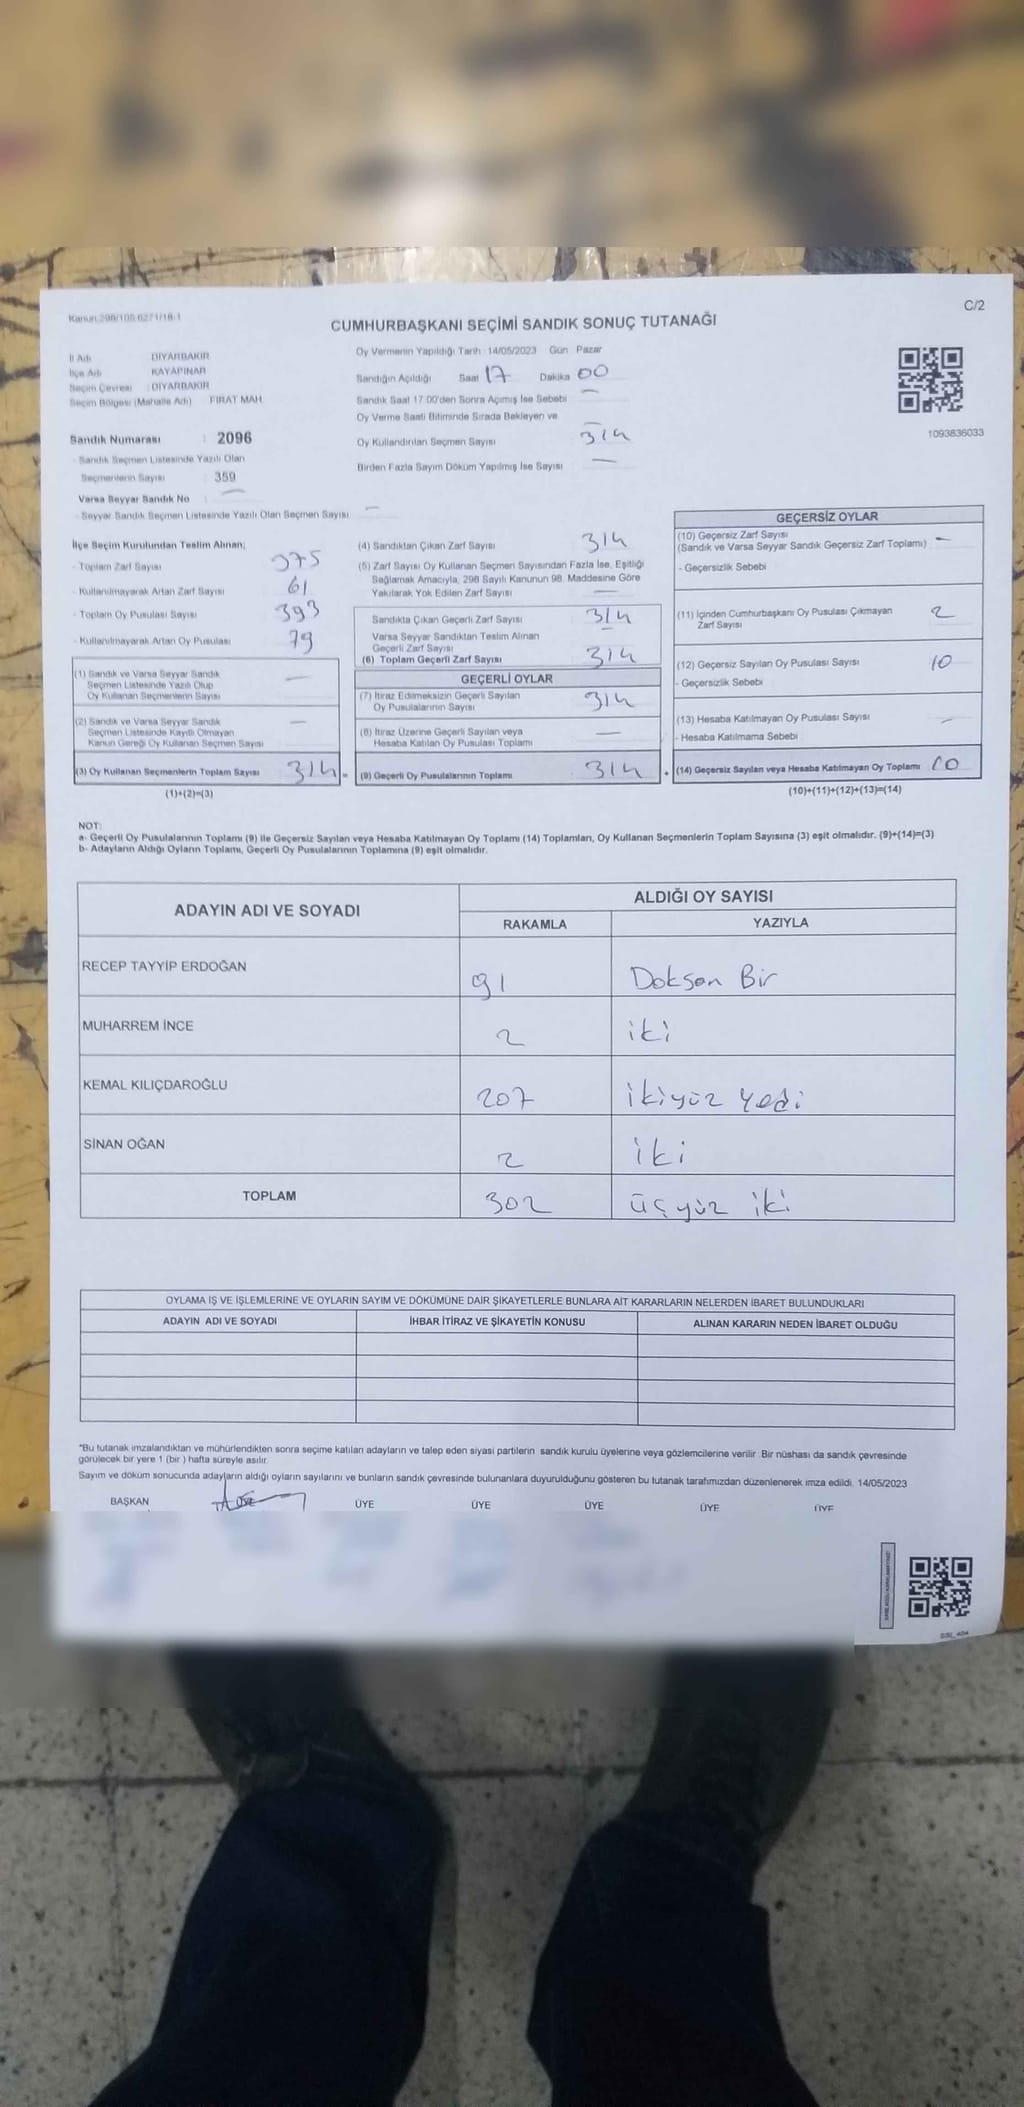 Kanun:298/105.6271/18-1
C/2
CUMHURBAŞKANI SEÇİMİ SANDIK SONUÇ TUTANAĞI
İl Adı : DİYARBAKIR
İlçe Adı : KAYAPINAR
Seçim Çevresi : DİYARBAKIR
Seçim Bölgesi (Mahalle Adı) FIRAT MAH.
Sandık Numarası : 2096
- Sandık Seçmen Listesinde Yazılı Olan
Seçmenlerin Sayısı : 359
Varsa Seyyar Sandık No : —
- Seyyar Sandık Seçmen Listesinde Yazılı Olan Seçmen Sayısı —
Oy Vermenin Yapıldığı Tarih : 14/05/2023 Gün : Pazar
Sandığın Açıldığı Saat 17 Dakika 00
Sandık Saat 17.00'den Sonra Açımış İse Sebebi —
Oy Verme Saati Bitiminde Sırada Bekleyen ve
Oy Kullandırılan Seçmen Sayısı 314
Birden Fazla Sayım Döküm Yapılmış İse Sayısı —
1093836033
İlçe Seçim Kurulundan Teslim Alınan;
- Toplam Zarf Sayısı 375
- Kullanılmayarak Artan Zarf Sayısı 61
- Toplam Oy Pusulası Sayısı 393
- Kullanılmayarak Artan Oy Pusulası 79
(1) Sandık ve Varsa Seyyar Sandık
Seçmen Listesinde Yazılı Olup
Oy Kullanan Seçmenlerin Sayısı —
(2) Sandık ve Varsa Seyyar Sandık
Seçmen Listesinde Kayıtlı Olmayan
Kanun Gereği Oy Kullanan Seçmen Sayısı —
(3) Oy Kullanan Seçmenlerin Toplam Sayısı 314 =
(1)+(2)=(3)
(4) Sandıktan Çıkan Zarf Sayısı 314
(5) Zarf Sayısı Oy Kullanan Seçmen Sayısından Fazla İse, Eşitliği
Sağlamak Amacıyla, 298 Sayılı Kanunun 98. Maddesine Göre
Yakılarak Yok Edilen Zarf Sayısı —
Sandıkta Çıkan Geçerli Zarf Sayısı 314
Varsa Seyyar Sandıktan Teslim Alınan
Geçerli Zarf Sayısı —
(6) Toplam Geçerli Zarf Sayısı 314
GEÇERLİ OYLAR
(7) İtiraz Edilmeksizin Geçerli Sayılan
Oy Pusulalarının Sayısı 314
(8) İtiraz Üzerine Geçerli Sayılan veya
Hesaba Katılan Oy Pusulası Toplamı —
(9) Geçerli Oy Pusulalarının Toplamı 314 +
GEÇERSİZ OYLAR
(10) Geçersiz Zarf Sayısı
(Sandık ve Varsa Seyyar Sandık Geçersiz Zarf Toplamı) —
- Geçersizlik Sebebi
(11) İçinden Cumhurbaşkanı Oy Pusulası Çıkmayan
Zarf Sayısı 2
(12) Geçersiz Sayılan Oy Pusulası Sayısı 10
- Geçersizlik Sebebi
(13) Hesaba Katılmayan Oy Pusulası Sayısı —
- Hesaba Katılmama Sebebi
(14) Geçersiz Sayılan veya Hesaba Katılmayan Oy Toplamı 10
(10)+(11)+(12)+(13)=(14)
NOT:
a- Geçerli Oy Pusulalarının Toplamı (9) ile Geçersiz Sayılan veya Hesaba Katılmayan Oy Toplamı (14) Toplamları, Oy Kullanan Seçmenlerin Toplam Sayısına (3) eşit olmalıdır. (9)+(14)=(3)
b- Adayların Aldığı Oyların Toplamı, Geçerli Oy Pusulalarının Toplamına (9) eşit olmalıdır.
ADAYIN ADI VE SOYADI ALDIĞI OY SAYISI
RAKAMLA YAZIYLA
RECEP TAYYİP ERDOĞAN 91 Doksan Bir
MUHARREM İNCE 2 iki
KEMAL KILIÇDAROĞLU 207 ikiyüz yedi
SİNAN OĞAN 2 iki
TOPLAM 302 üçyüz iki
OYLAMA İŞ VE İŞLEMLERİNE VE OYLARIN SAYIM VE DÖKÜMÜNE DAİR ŞİKAYETLERLE BUNLARA AİT KARARLARIN NELERDEN İBARET BULUNDUKLARI
ADAYIN ADI VE SOYADI İHBAR İTİRAZ VE ŞİKAYETİN KONUSU ALINAN KARARIN NEDEN İBARET OLDUĞU
*Bu tutanak imzalandıktan ve mühürlendikten sonra seçime katılan adayların ve talep eden siyasi partilerin sandık kurulu üyelerine veya gözlemcilerine verilir. Bir nüshası da sandık çevresinde
görülecek bir yere 1 (bir ) hafta süreyle asılır.
Sayım ve döküm sonucunda adayların aldığı oyların sayılarını ve bunların sandık çevresinde bulunanlara duyurulduğunu gösteren bu tutanak tarafımızdan düzenlenerek imza edildi. 14/05/2023
BAŞKAN ÜYE ÜYE ÜYE ÜYE ÜYE ÜYE